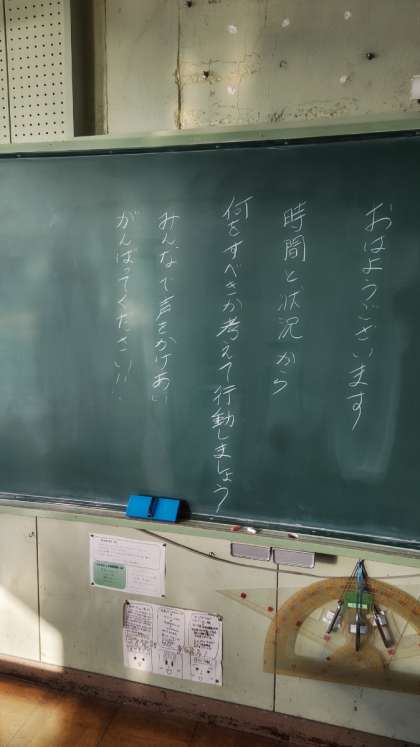 おはようございます
時間と状況から
何をすべきか考えて行動しましょう
みんなで声をかけあい
がんばってください!!